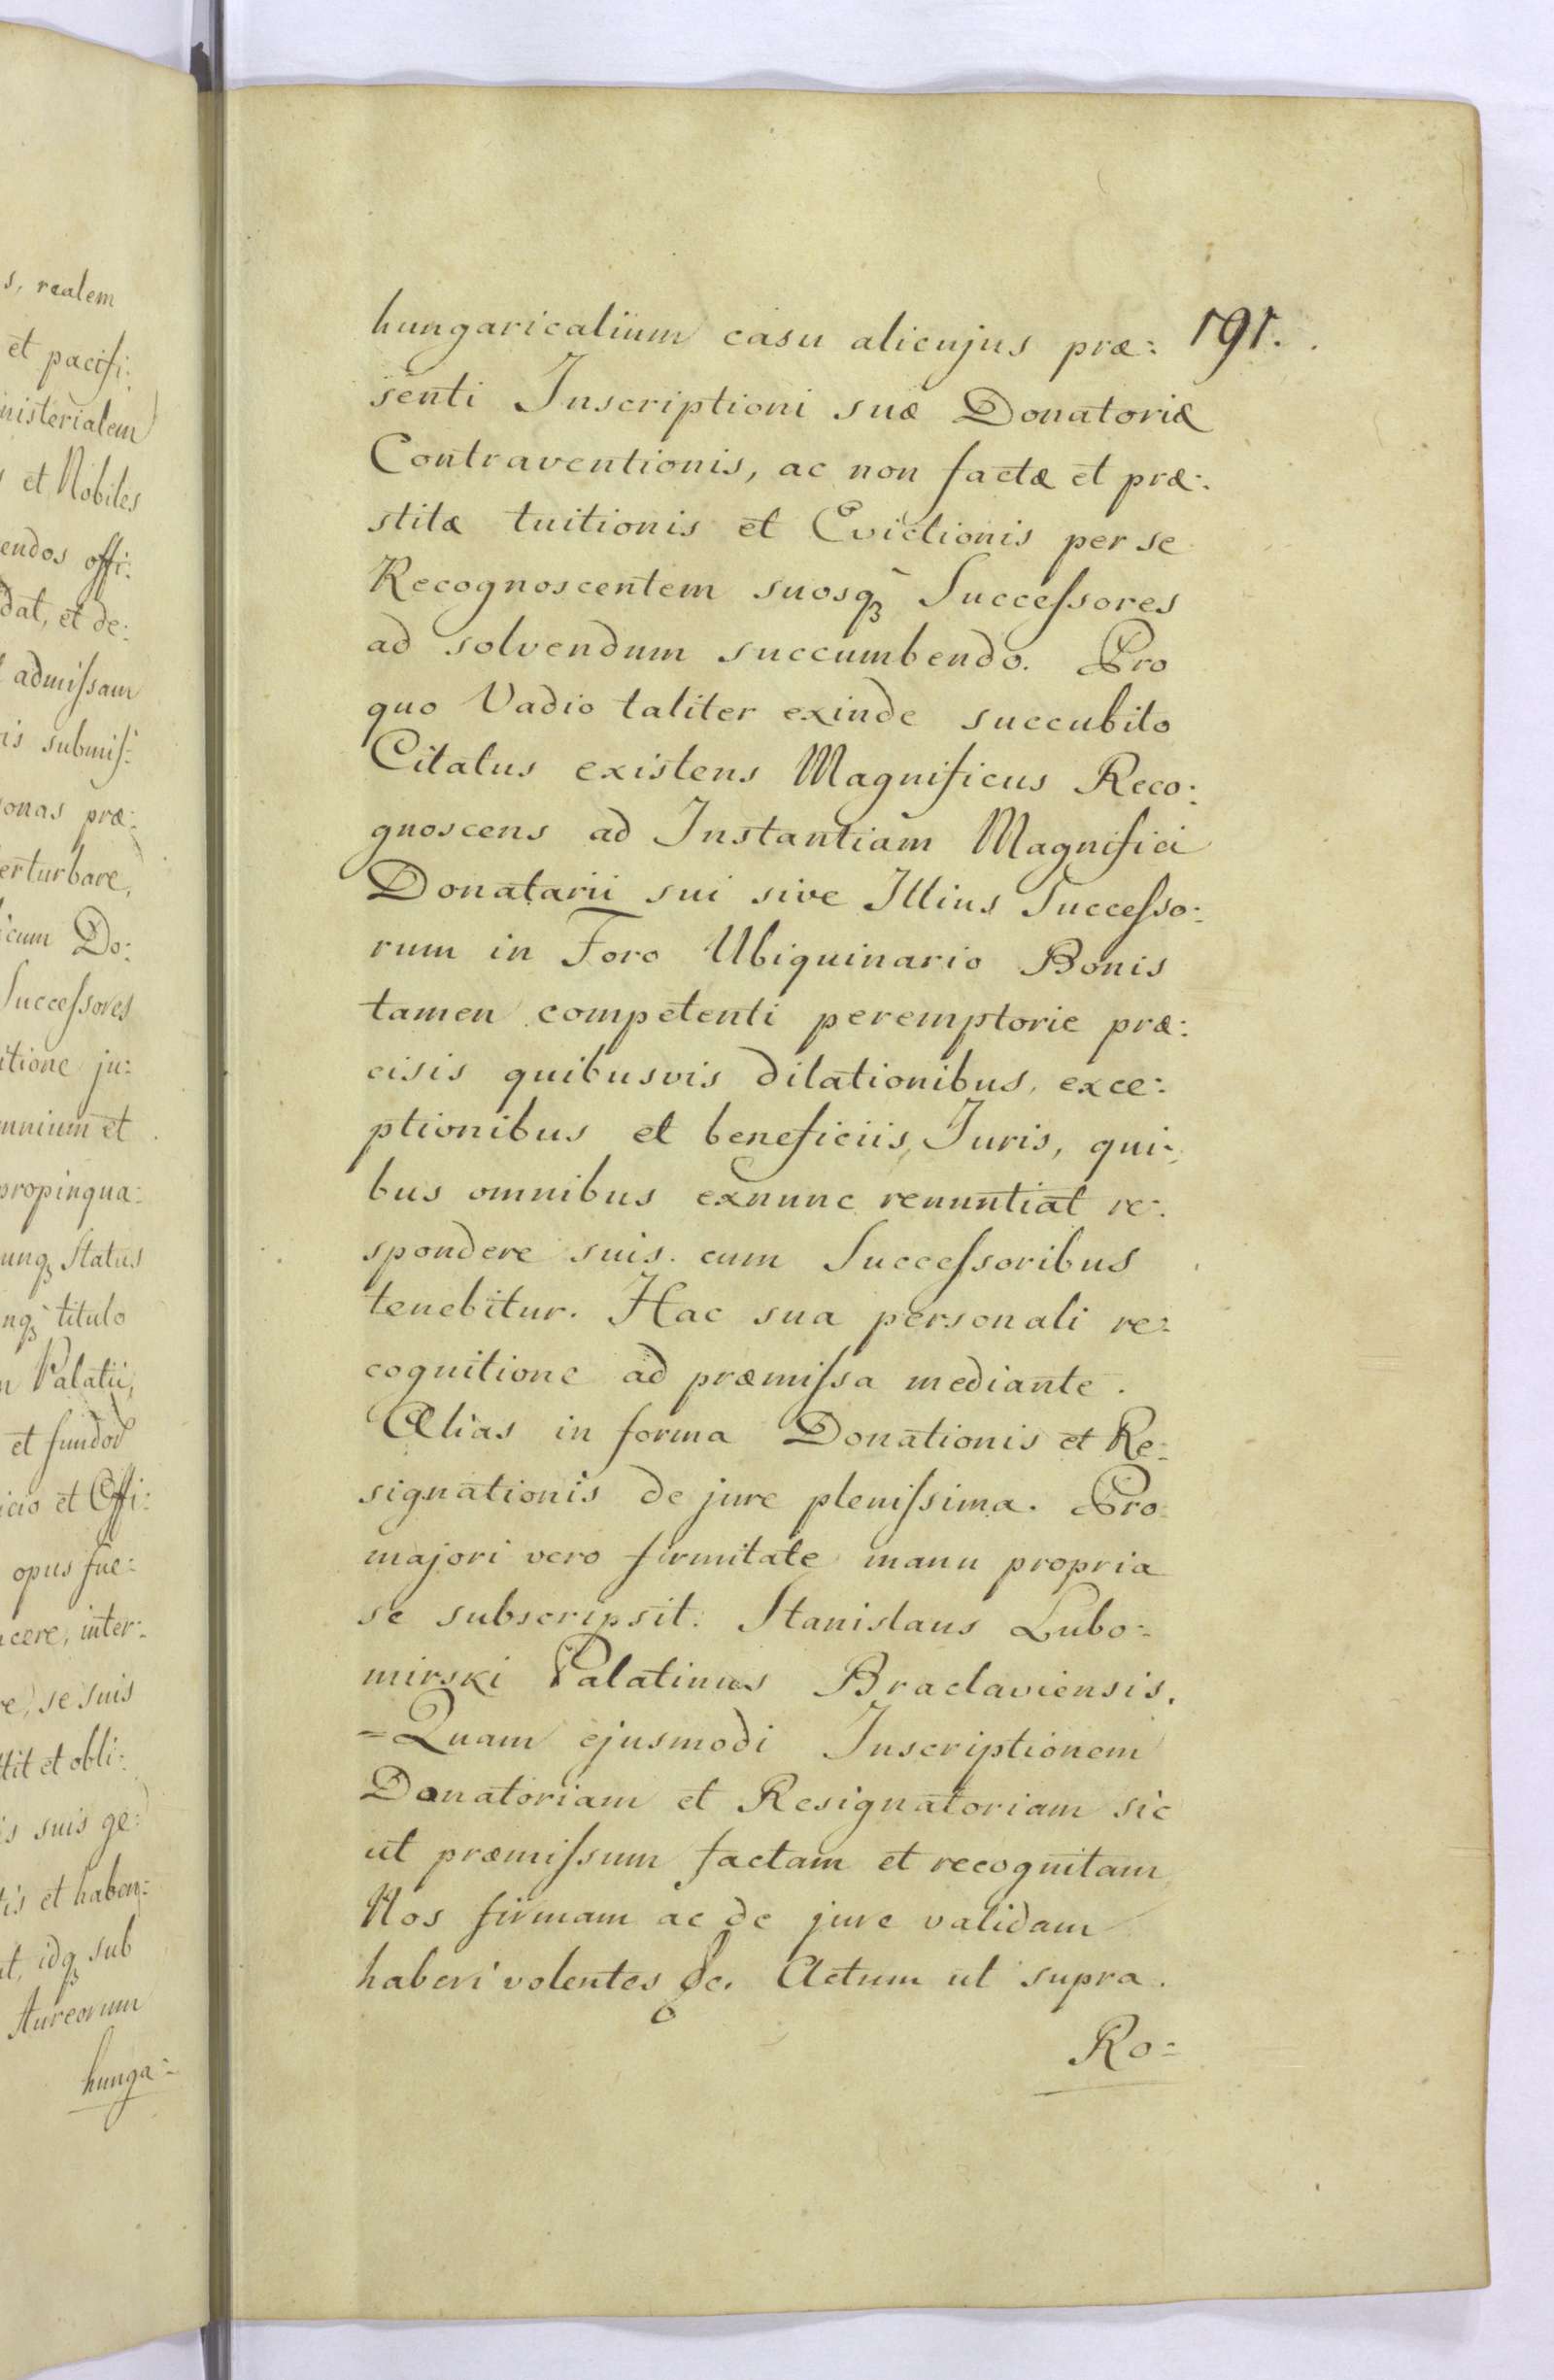 s, realem
et pacifi:
nisterialem
et Nobiles
endos offi:
dat, et de:
admiſsam
is submiſ:
onas præ:
erturbare,
icum Do:
Succeſsores
itione ju:
mnium et
propinqua:
unqȝ Status
nqȝ titulo
Palatii,
et fundos
icio et Offi:
opus fue:
cere, inter:
re, se suis
ttit et obli:
is suis ge:
tis et haben:
t, idqȝ sub
Aureorum
hunga:
191.
hungaricalium casu alicujus præ:
senti Inscriptioni suæ Donatoriæ
Contraventionis, ac non factæ et præ:
stitæ tuitionis et Evictionis per se
Recognoscentem suosqȝ Succeſsores
ad solvendum succumbendo. Pro
quo Vadio taliter exinde succubito
Citatus existens Magnificus Reco:
gnoscens ad Instantiam Magnifici
Donatarii sui sive Illius Succeſso:
rum in Foro Ubiquinario Bonis
tamen competenti peremptorie præ:
cisis quibusvis dilationibus, exce:
ptionibus et beneficiis Juris, qui:
bus omnibus exnunc renuntiat re:
spondere suis cum Succeſsoribus
tenebitur. Hac sua personali re:
cognitione ad præmiſsa mediante.
Alias in forma Donationis et Re:
signationis de jure pleniſsima. Pro
majori vero firmitate manu propria
se subscripsit. Stanislaus Lubo:
mirski Palatinus Braclaviensis.
=Quam ejusmodi Inscriptionem
Donatoriam et Resignatoriam sic
ut præmiſsum factam et recognitam
Nos firmam ac de jure validam
haberi volentes &c. Actum ut supra.
Ro: